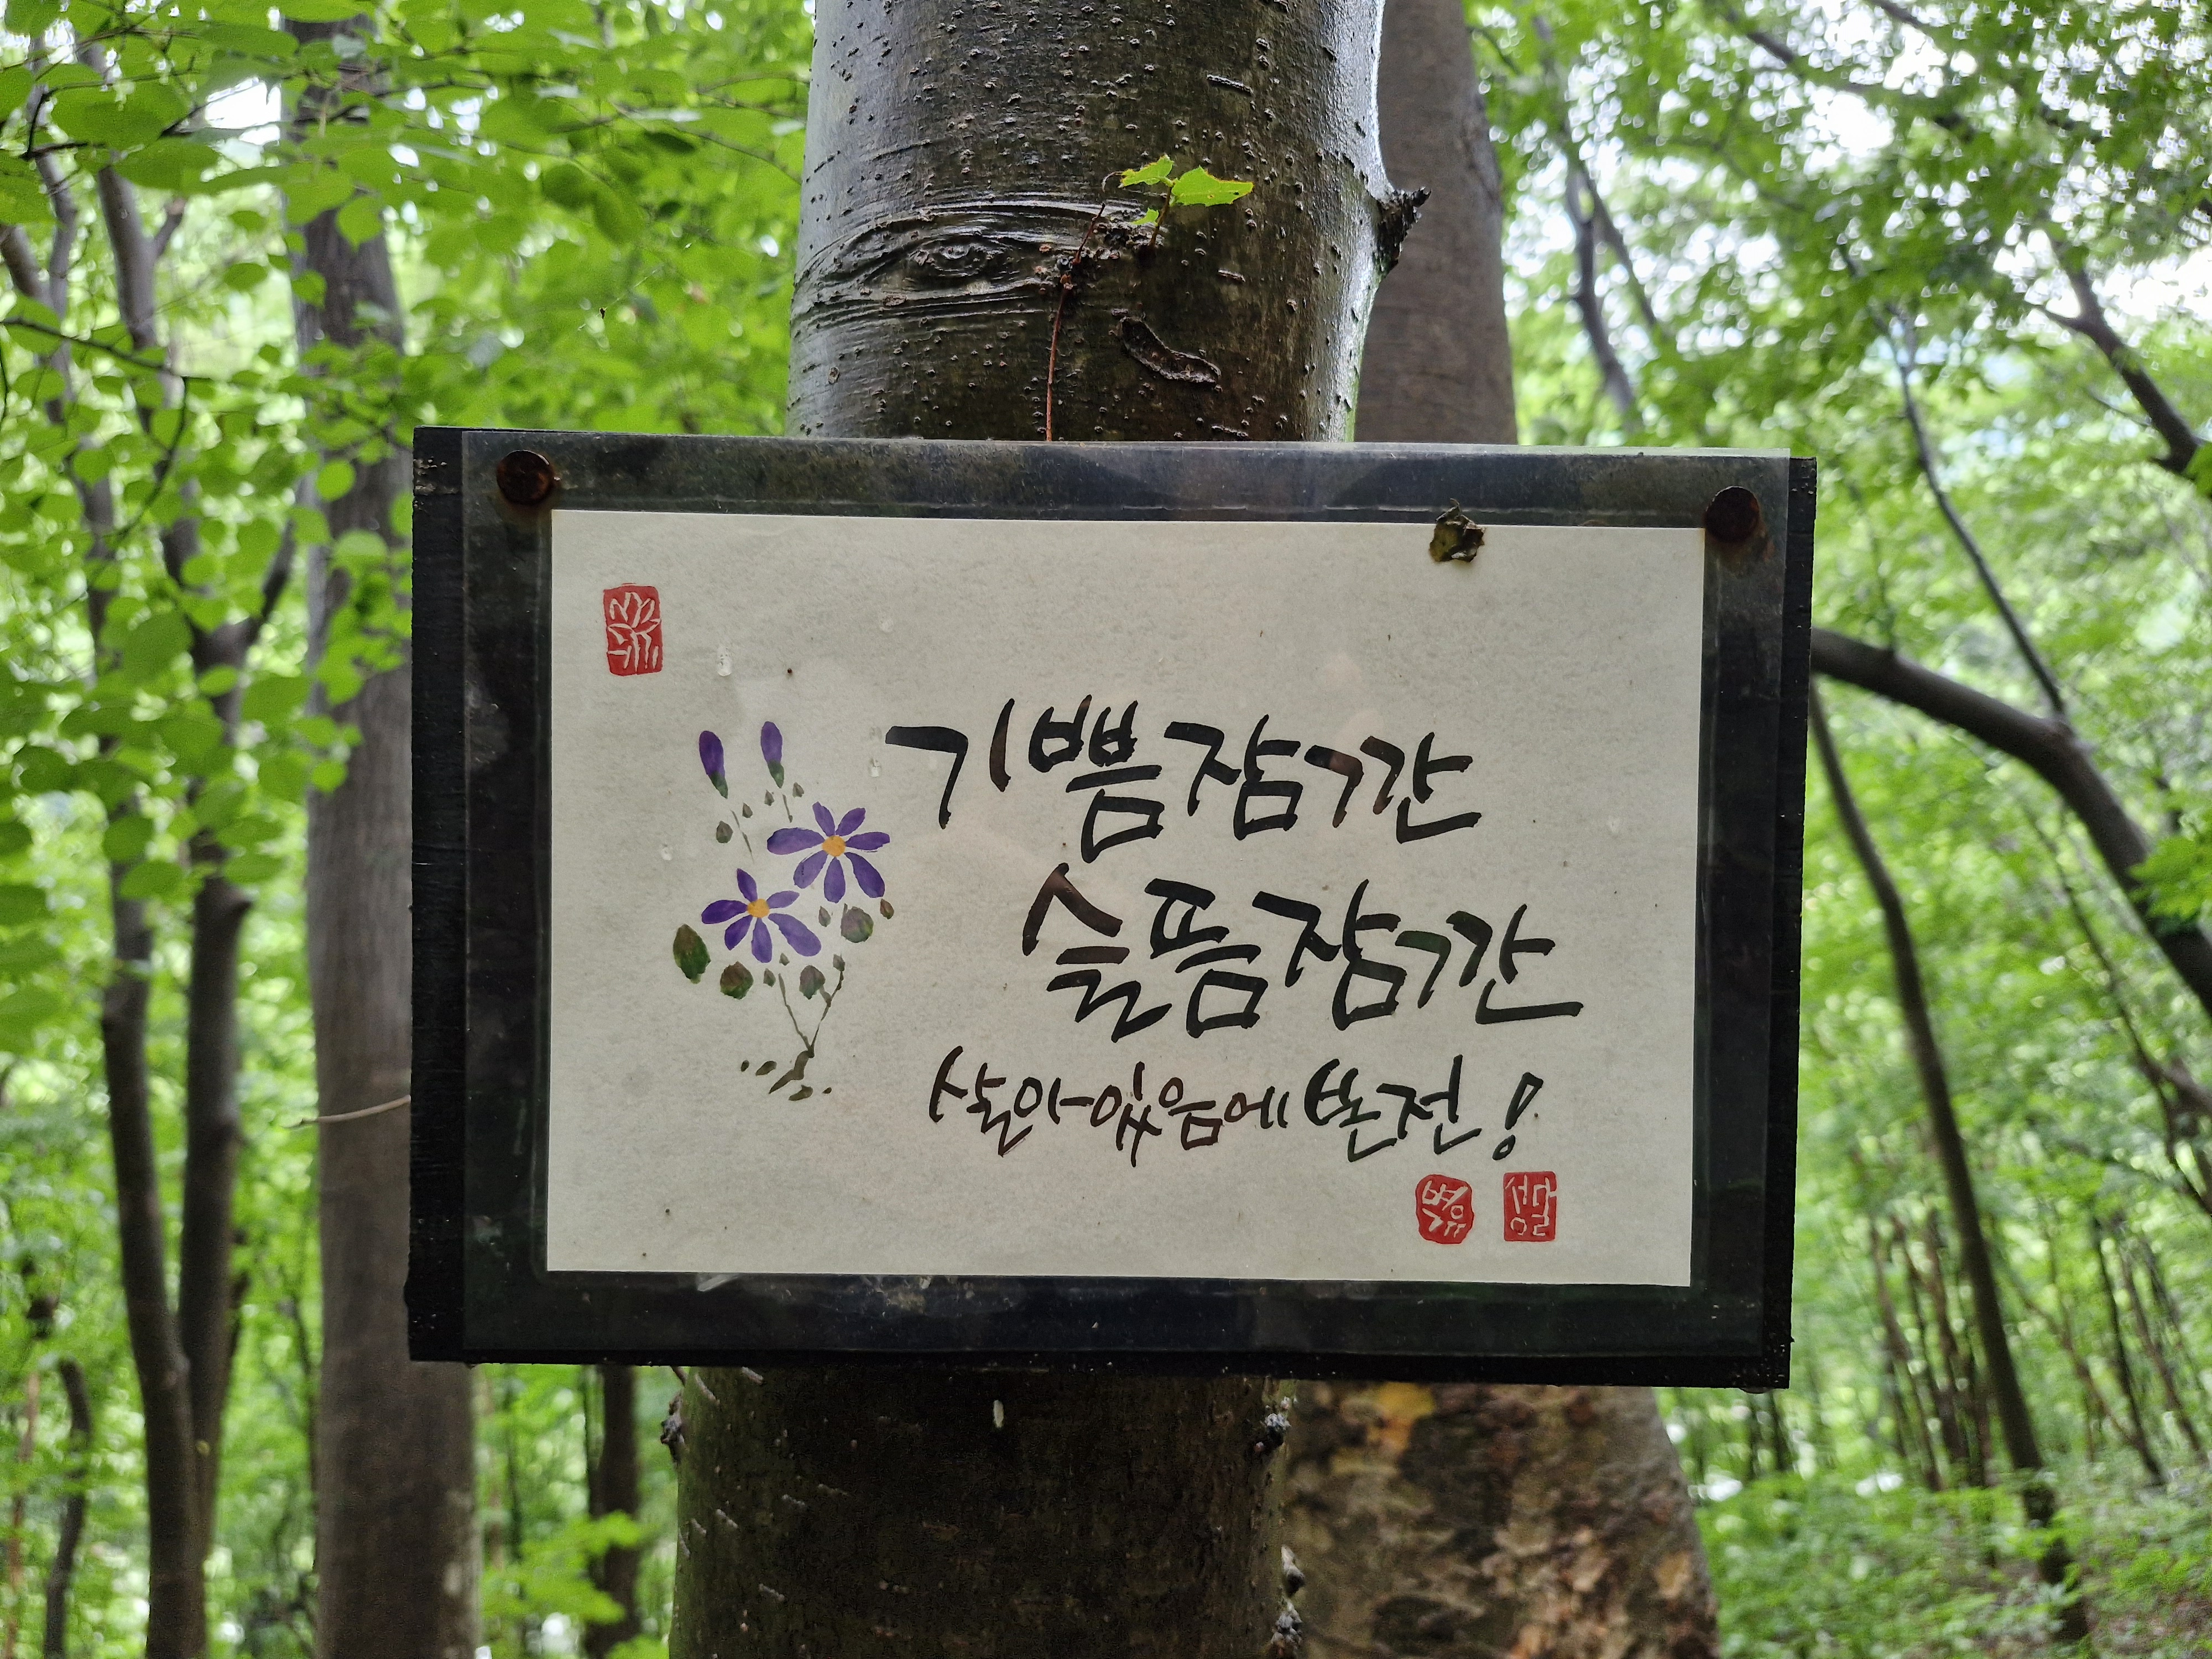 기쁨잠깐
슬픔잠깐
살아있음에 본전!